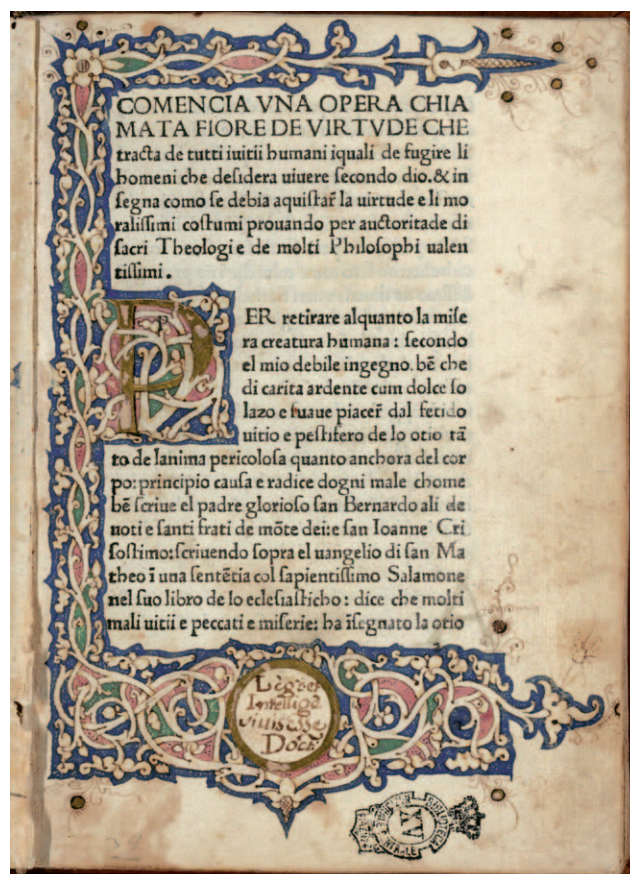 COMENCIA VNA OPERA CHIA
MATA FIORE DE VIRTVDE CHE
tracta de tutti iuitii humani iquali de fugire li
homeni che deſidera uiuere ſecondo dio. & in
ſegna como ſe debia aquiſtar̃ la uirtude e li mo
raliſſimi coſtumi prouando per auctoritade di
ſacri Theologi e de molti Philoſophi ualen
tiſſimi.
PER retirare alquanto la miſe
ra creatura humana: ſecondo
el mio debile ingegno. bẽ che
di carita ardente cum dolce ſo
lazo e ſuaue piacer̃ dal fetido
uitio e peſtifero de lo otio tã
to de lanima pericoloſa quanto anchora del cor
po: principio cauſa e radice dogni male chome
bẽ ſcriue el padre glorioſo ſan Bernardo ali de
noti e ſanti frati de mõte dei: e ſan Ioanne Cri
ſoſtimo: ſcriuendo ſopra el uangelio di ſan Ma
theo ĩ una ſentẽtia col ſapientiſſimo Salamone
nel ſuo libro de lo ecleſiaſticho: dice che molti
mali uitii e peccati e miſerie: ha ĩſegnato la otio
Doct
XV